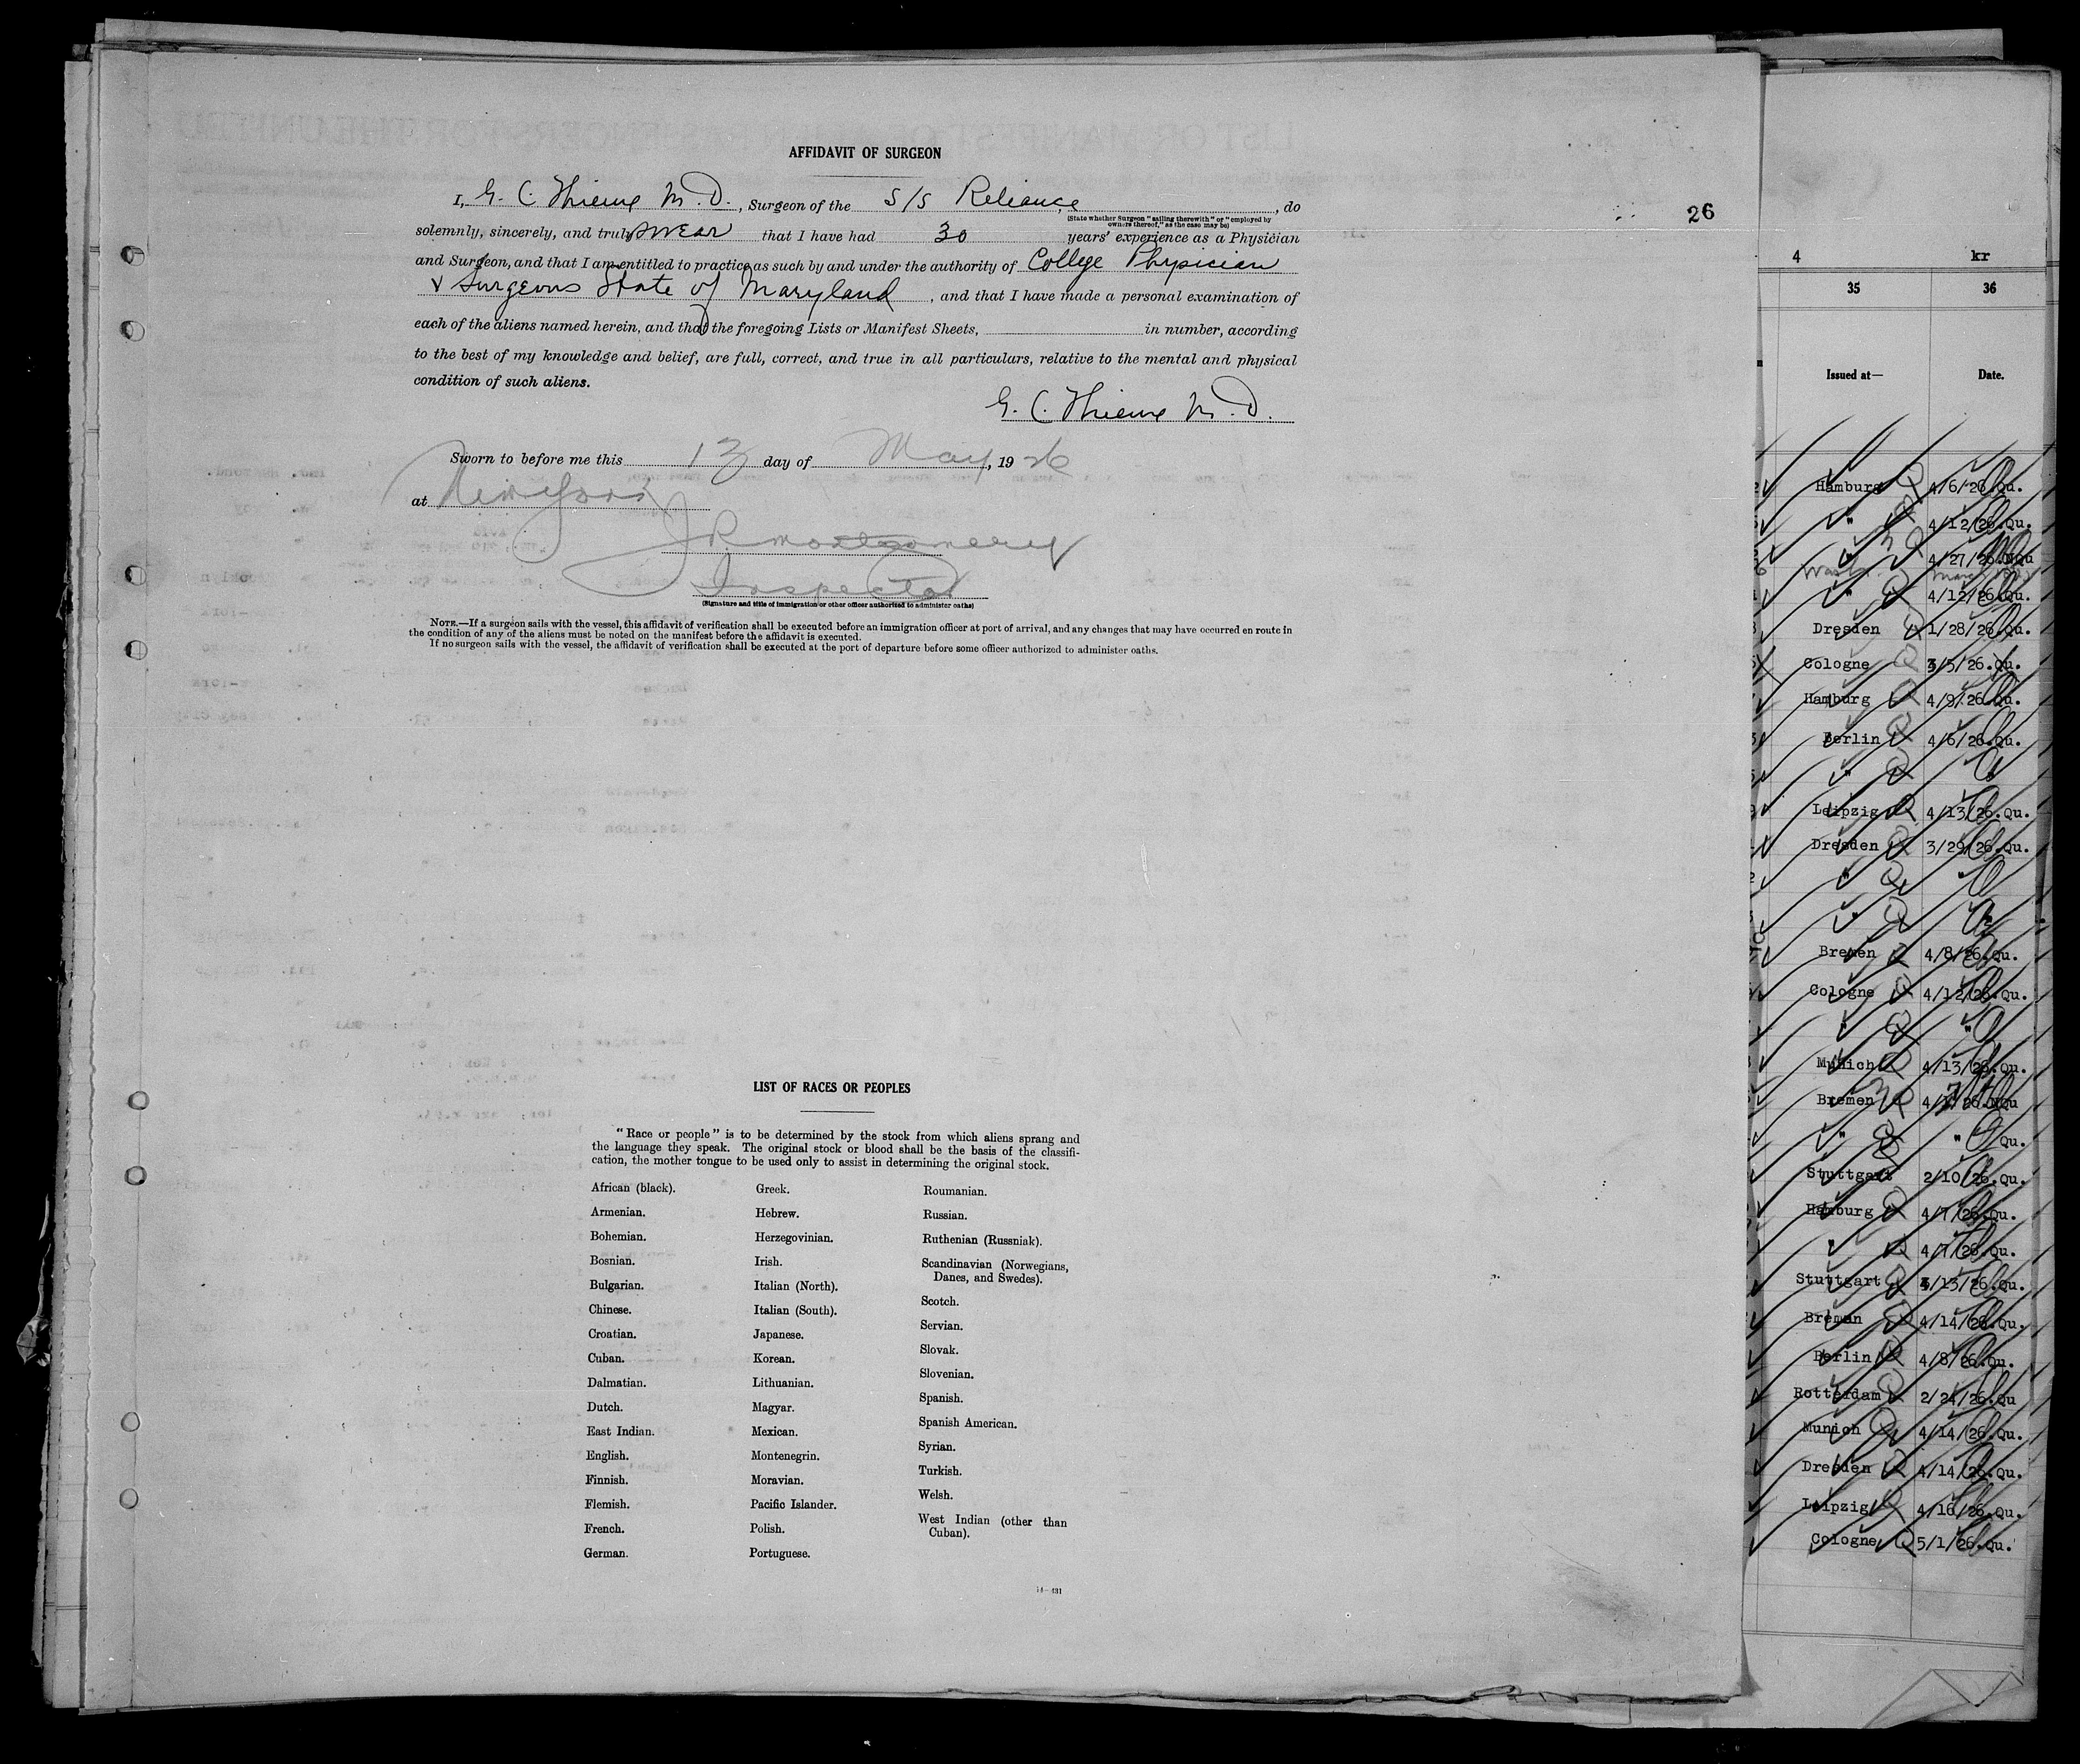 AFFIDAVIT OF SURGEON
26
I, G. C. Thieme M.D., Surgeon of the S/S Reliance, do
(State whether Surgeon "sailing therewith" or "employed by owners thereof," as the case may be)
solemnly, sincerely, and truly swear that I have had 30 years' experience as a Physician
and Surgeon, and that I am entitled to practice as such by and under the authority of College Physician
& Surgeons State of Maryland, and that I have made a personal examination of
each of the aliens named herein, and that the foregoing Lists or Manifest Sheets, in number, according
to the best of my knowledge and belief, are full, correct, and true in all particulars, relative to the mental and physical
condition of such aliens.
G. C. Thieme M.D.
Sworn to before me this 13 day of May, 1926
at New York
J R Montgomery
Inspector
(Signature and title of immigration or other officer authorized to administer oaths)
NOTE.—If a surgeon sails with the vessel, this affidavit of verification shall be executed before an immigration officer at port of arrival, and any changes that may have occurred en route in
the condition of any of the aliens must be noted on the manifest before the affidavit is executed.
If no surgeon sails with the vessel, the affidavit of verification shall be executed at the port of departure before some officer authorized to administer oaths.
LIST OF RACES OR PEOPLES
"Race or people" is to be determined by the stock from which aliens sprang and
the language they speak. The original stock or blood shall be the basis of the classifi-
cation, the mother tongue to be used only to assist in determining the original stock.
African (black).
Armenian.
Bohemian.
Bosnian.
Bulgarian.
Chinese.
Croatian.
Cuban.
Dalmatian.
Dutch.
East Indian.
English.
Finnish.
Flemish.
French.
German.
Greek.
Hebrew.
Herzegovinian.
Irish.
Italian (North).
Italian (South).
Japanese.
Korean.
Lithuanian.
Magyar.
Mexican.
Montenegrin.
Moravian.
Pacific Islander.
Polish.
Portuguese.
Roumanian.
Russian.
Ruthenian (Russniak).
Scandinavian (Norwegians,
Danes, and Swedes).
Scotch.
Servian.
Slovak.
Slovenian.
Spanish.
Spanish American.
Syrian.
Turkish.
Welsh.
West Indian (other than
Cuban).
14—431
4 kr
35 36
Issued at— Date.
Hamburg 4/6/26.Qu.
" 4/12/26.Qu.
" 4/27/26.NQu
" 4/12/26.Qu.
Dresden 1/28/26.Qu.
Cologne 3/5/26.Qu.
Hamburg 4/9/26.Qu.
Berlin 4/6/26.Qu.
" "
Leipzig 4/13/26.Qu.
Dresden 3/29/26.Qu.
" "
" "
Bremen 4/8/26.Qu.
Cologne 4/12/26.Qu.
" "
Munich 4/13/26.Qu.
Bremen 26.NQu
" " Qu.
Stuttgart 2/10/26.Qu.
Hamburg 4/7/26.Qu.
" 4/7/26.Qu.
Stuttgart 13/26.Qu.
Bremen 4/14/26.Qu.
Berlin 4/8/26.Qu.
Rotterdam 2/24/26.Qu
Munich 4/14/26.Qu.
Dresden 4/14/26.Qu.
Leipzig 4/16/26.Qu.
Cologne 5/1/26.Qu.